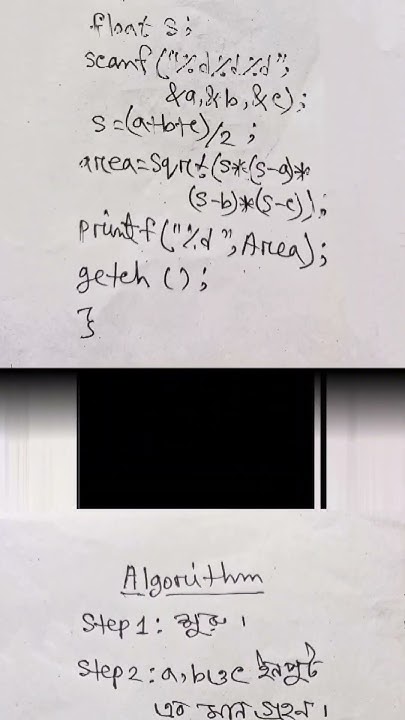 float s;
scanf("%d%d%d",
&a,&b,&c);
s=(a+b+c)/2;
area=sqrt(s*(s-a)*
(s-b)*(s-c));
printf("%d",Area);
getch();
}
Algorithm
Step 1: শুরু।
Step 2: a, b ও c ইনপুট
এর মান গ্রহন।